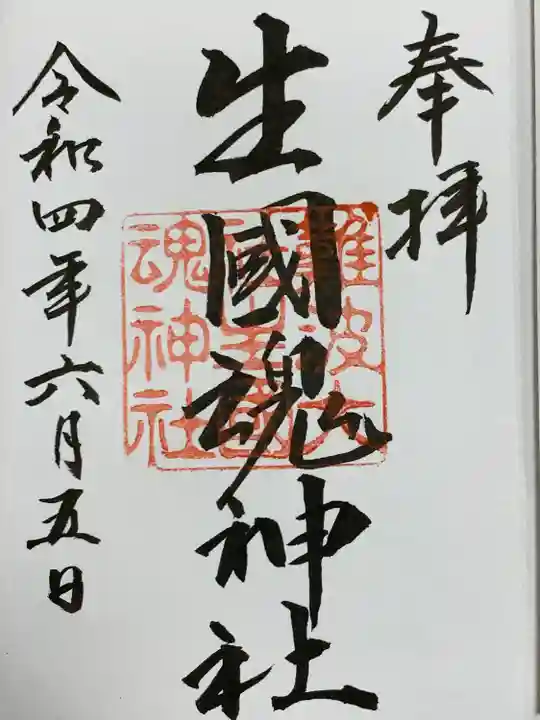 奉拝
生國魂神社
難波大
魂神社
令和四年六月五日